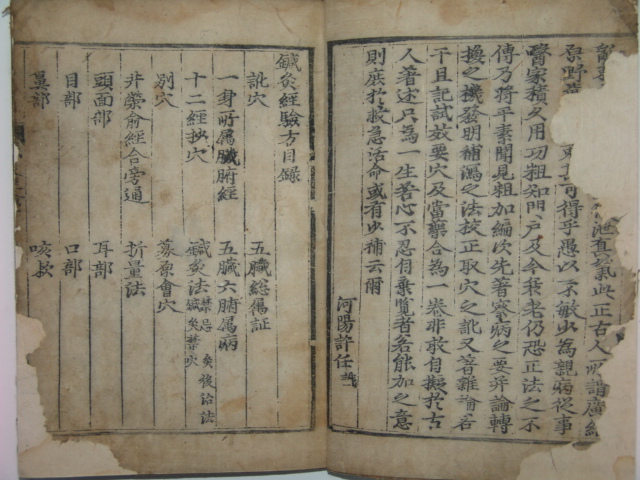 泄真氣此正古人所謂廣絡
原野 可得乎愚以不敏少為親病從事
醫家積久用功粗知門戶及今衰老仍恐正法之不
傳乃將平素聞見粗加編次先著察病之要并論轉
換之機發明補瀉之法校正取穴之訛又著雜論若
干且記試效要穴及當藥合為一卷非敢自擬於古
人著述只為一生苦心不忍自棄覽者若能加之意
則庶於救急活命或有少補云爾
河陽許任識
鍼灸經驗方目錄
訛穴 五臟總屬証
一身所属臟腑經 五臟六腑属病
十二經抄穴 鍼灸法 禁忌 灸後治法 鍼灸禁穴
別穴 募原會穴
井滎俞經合旁通 折量法
頭面部 耳部
目部 口部
鼻部 咳嗽